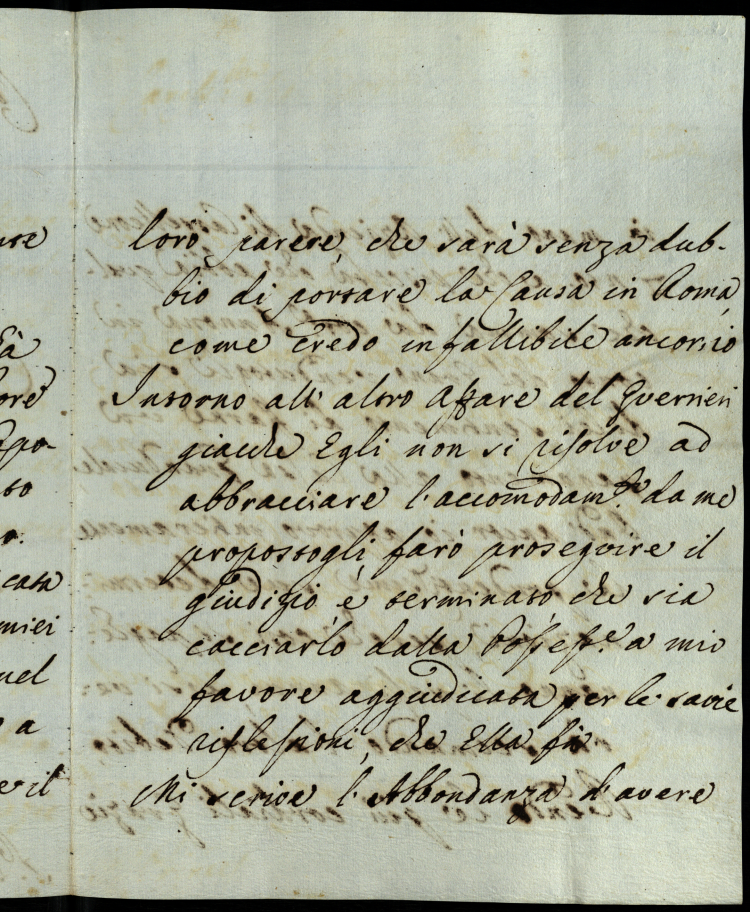 loro parere, che sarà senza dub-
bio di portare la Causa in Roma,
come credo infallibile ancor io
Intorno all'altro affare del Guerrieri
giacche Egli non si risolve ad
abbracciare l'accomodam.to da me
propostogli, farò proseguire il
giudizio, e terminato che sia
cacciarlo dalla Possess.e a mio
favore aggiudicata per le savie
riflessioni, che Ella fa
Mi scrive l'Abbondanza d'avere
ore
casa
miei
uel
a